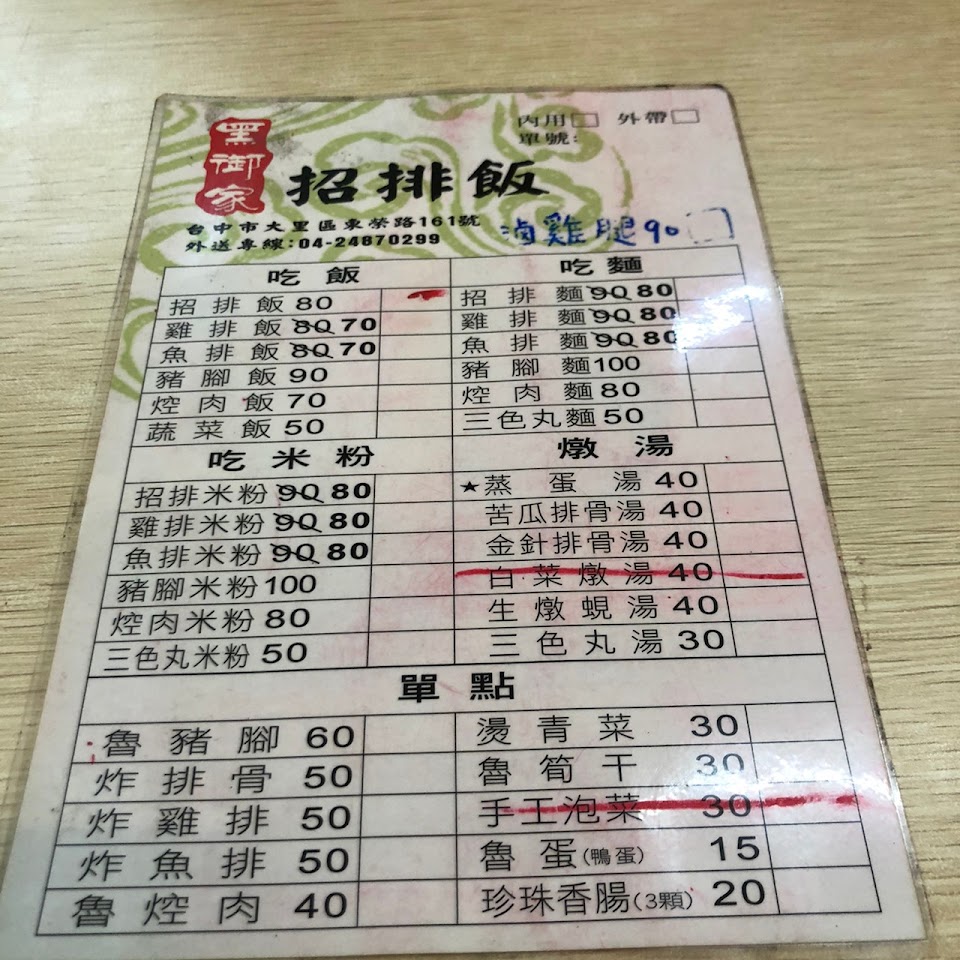 黑御家
招排飯
內用□ 外帶□
單號:
台中市大里區東榮路161號
外送專線:04-24870299
滷雞腿90
吃飯
招排飯 80
雞排飯 80 70
魚排飯 80 70
豬腳飯 90
焢肉飯 70
蔬菜飯 50
吃麵
招排麵 90 80
雞排麵 90 80
魚排麵 90 80
豬腳麵 100
焢肉麵 80
三色丸麵 50
吃米粉
招排米粉 90 80
雞排米粉 90 80
魚排米粉 90 80
豬腳米粉 100
焢肉米粉 80
三色丸米粉 50
燉湯
★蒸蛋湯 40
苦瓜排骨湯 40
金針排骨湯 40
白菜燉湯 40
生燉蜆湯 40
三色丸湯 30
單點
魯豬腳 60
炸排骨 50
炸雞排 50
炸魚排 50
魯焢肉 40
燙青菜 30
魯筍干 30
手工泡菜 30
魯蛋(鴨蛋) 15
珍珠香腸(3顆) 20